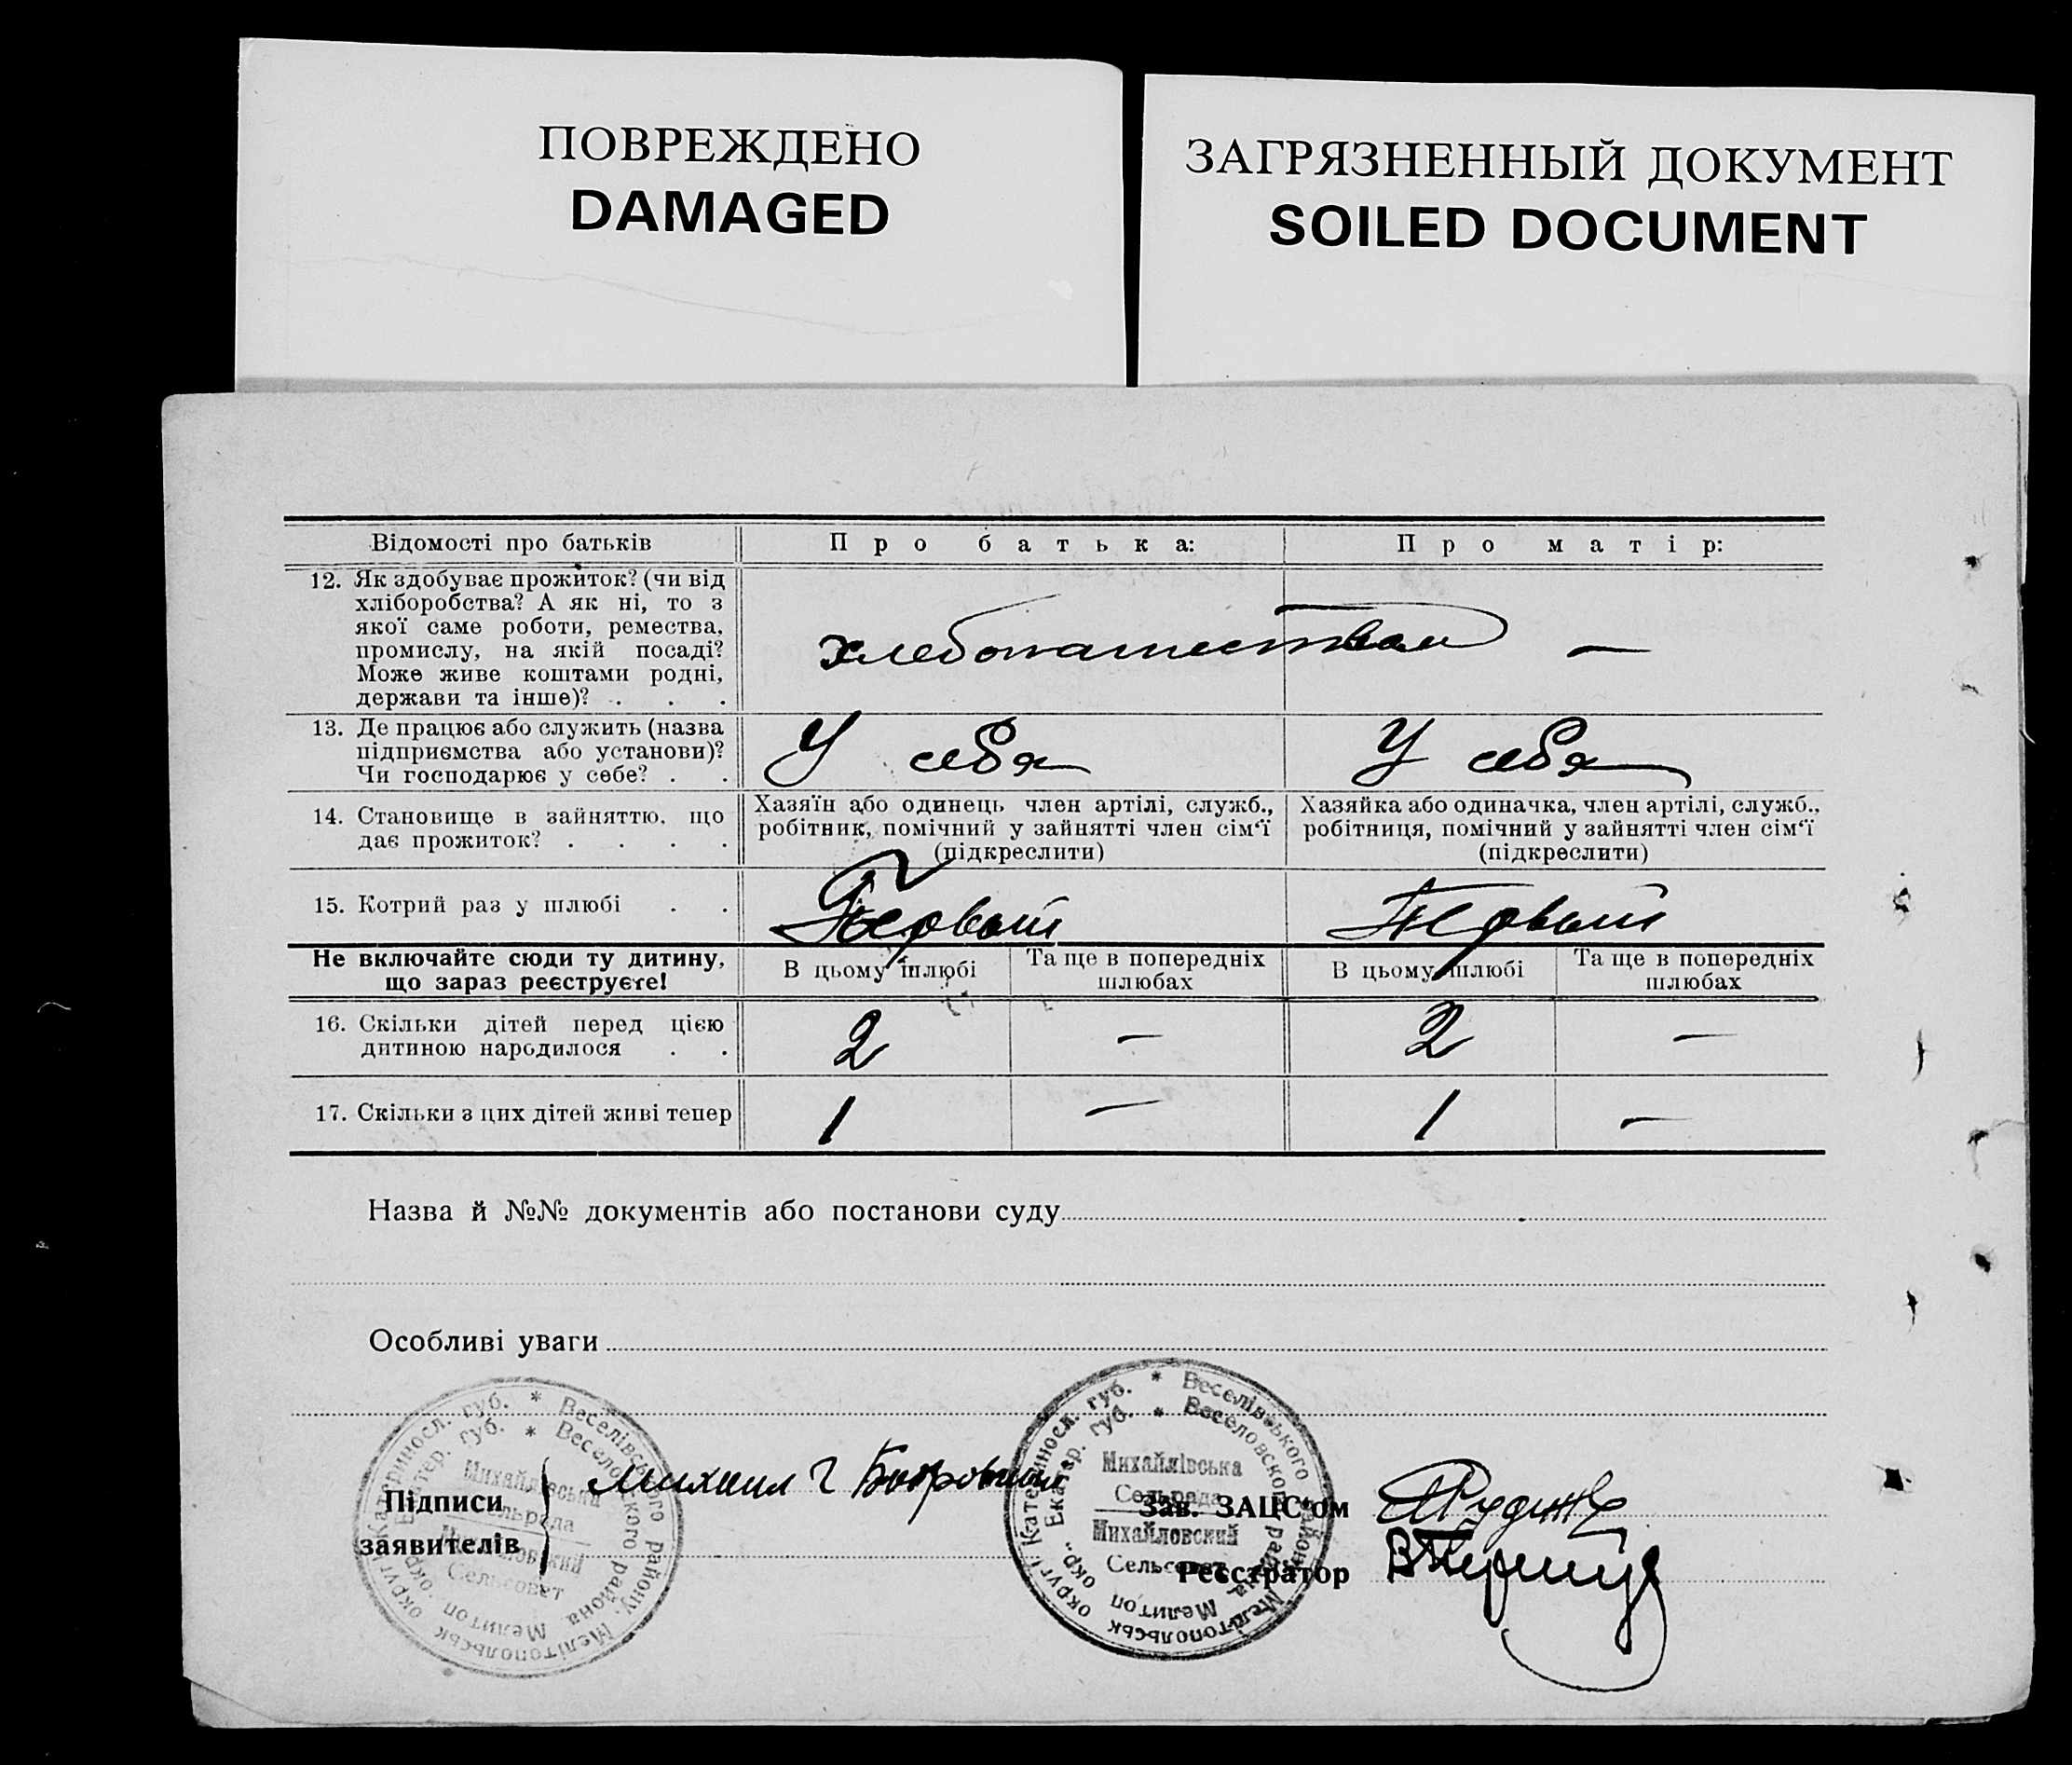 ПОВРЕЖДЕНО
DAMAGED
ЗАГРЯЗНЕННЫЙ ДОКУМЕНТ
SOILED DOCUMENT
Відомості про батьків
Про батька:
Про матір:
12. Як здобуває прожиток? (чи від
хліборобства? А як ні, то з
якої саме роботи, ремества,
промислу, на якій посаді?
Може живе коштами родні,
держави та інше)? . . .
хлебопашеством
—
13. Де працює або служить (назва
підприємства або установи)?
Чи господарює у себе? . .
У себя
У себя
14. Становище в зайняттю, що
дає прожиток? . . . .
Хазяїн або одинець член артілі, служб.,
робітник, помічний у зайнятті член сім'ї
(підкреслити)
Хазяйка або одиначка, член артілі, служб.,
робітниця, помічний у зайнятті член сім'ї
(підкреслити)
15. Котрий раз у шлюбі . .
Первый
Первый
Не включайте сюди ту дитину,
що зараз реєструєте!
В цьому шлюбі
Та ще в попередніх
шлюбах
В цьому шлюбі
Та ще в попередніх
шлюбах
16. Скільки дітей перед цією
дитиною народилося . .
2
—
2
—
17. Скільки з цих дітей живі тепер
1
—
1
—
Назва й №№ документів або постанови суду
Особливі уваги
Підписи
заявителів
Михаил Г
Зав. ЗАЦС'ом
Реєстратор
Катериносл. губ. * Веселівського району, Мелітопольськ округ.
Екатер. губ. * Веселовского района Мелитоп окр.
Михайлівська
Сельрада
Михайловский
Сельсовет
Катериносл. губ. * Веселівського району, Мелітопольськ округ.
Екатер. губ. * Веселовского района Мелитоп окр.
Михайлівська
Сельрада
Михайловский
Сельсовет